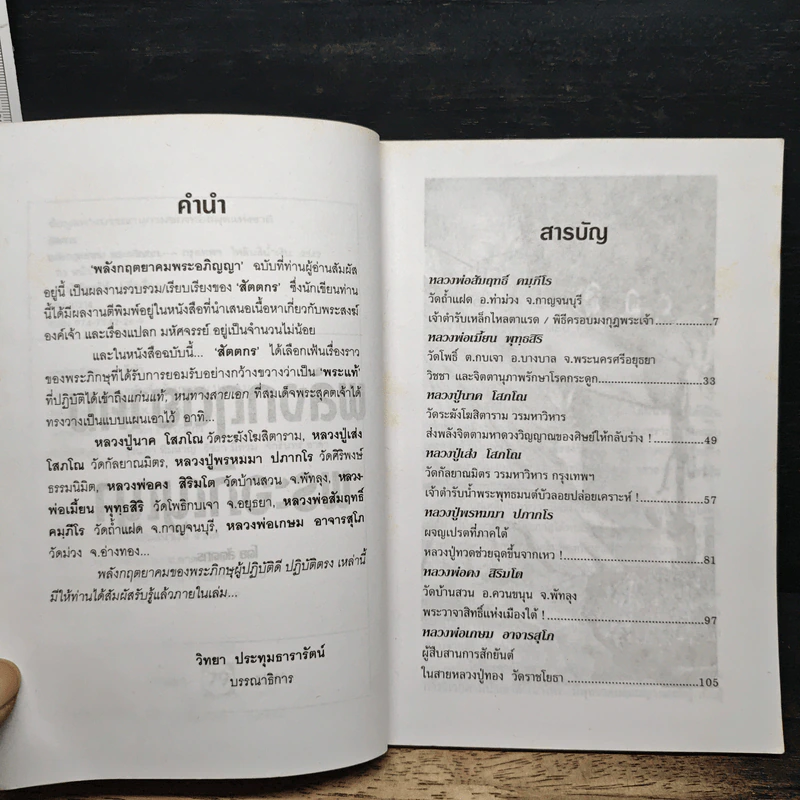 คำนำ
'พลังกฤตยาคมพระอภิญญา' ฉบับที่ท่านผู้อ่านสัมผัส
อยู่นี้ เป็นผลงานรวบรวม/เรียบเรียงของ 'สัตตกร' ซึ่งนักเขียนท่าน
นี้ได้มีผลงานตีพิมพ์อยู่ในหนังสือที่นำเสนอเนื้อหาเกี่ยวกับพระสงฆ์
องค์เจ้า และเรื่องแปลก มหัศจรรย์ อยู่เป็นจำนวนไม่น้อย
และในหนังสือฉบับนี้... 'สัตตกร' ได้เลือกเฟ้นเรื่องราว
ของพระภิกษุที่ได้รับการยอมรับอย่างกว้างขวางว่าเป็น 'พระแท้'
ที่ปฏิบัติได้เข้าถึงแก่นแท้, หนทางสายเอก ที่สมเด็จพระสุคตเจ้าได้
ทรงวางเป็นแบบแผนเอาไว้ อาทิ...
หลวงปู่นาค โสภโณ วัดระฆังโฆสิตาราม, หลวงปู่เส่ง
โสภโณ วัดกัลยาณมิตร, หลวงปู่พรหมมา ปภากโร วัดศิริพงษ์
ธรรมนิมิต, หลวงพ่อคง สิริมโต วัดบ้านสวน จ.พัทลุง, หลวง-
พ่อเมี้ยน พุทธสิริ วัดโพธิกบเจา จ.อยุธยา, หลวงพ่อสัมฤทธิ์
คมฺภีโร วัดถ้ำแฝด จ.กาญจนบุรี, หลวงพ่อเกษม อาจารสุโภ
วัดม่วง จ.อ่างทอง...
พลังกฤตยาคมของพระภิกษุผู้ปฏิบัติดี ปฏิบัติตรง เหล่านี้
มีให้ท่านได้สัมผัสรับรู้แล้วภายในเล่ม...
วิทยา ประทุมธารารัตน์
บรรณาธิการ
สารบัญ
หลวงพ่อสัมฤทธิ์ คมฺภีโร
วัดถ้ำแฝด อ.ท่าม่วง จ.กาญจนบุรี
เจ้าตำรับเหล็กไหลตาแรด / พิธีครอบมงกุฎพระเจ้า.............7
หลวงพ่อเมี้ยน พุทฺธสิริ
วัดโพธิ์ ต.กบเจา อ.บางบาล จ.พระนครศรีอยุธยา
วิชชา และจิตตานุภาพรักษาโรคกระดูก...........................33
หลวงปู่นาค โสภโณ
วัดระฆังโฆสิตาราม วรมหาวิหาร
ส่งพลังจิตตามหาดวงวิญญาณของศิษย์ให้กลับร่าง !.............49
หลวงปู่เส่ง โสภโณ
วัดกัลยาณมิตร วรมหาวิหาร กรุงเทพฯ
เจ้าตำรับน้ำพระพุทธมนต์บัวลอยปล่อยเคราะห์ !................57
หลวงปู่พรหมมา ปภากโร
ผจญเปรตที่ภาคใต้
หลวงปู่ทวดช่วยฉุดขึ้นจากเหว !....................................81
หลวงพ่อคง สิริมโต
วัดบ้านสวน อ.ควนขนุน จ.พัทลุง
พระวาจาสิทธิ์แห่งเมืองใต้ !........................................97
หลวงพ่อเกษม อาจารสุโภ
ผู้สืบสานการสักยันต์
ในสายหลวงปู่ทอง วัดราชโยธา ....................................105